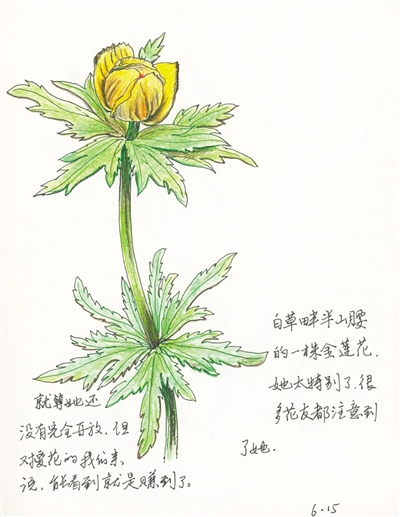 白草畔半山腰
的一株金莲花.
她太特别了.很
多花友都注意到
了她.
就算她还
没有完全开放.但
对搜花的我们来
说,能看到就是赚到了。
6.15